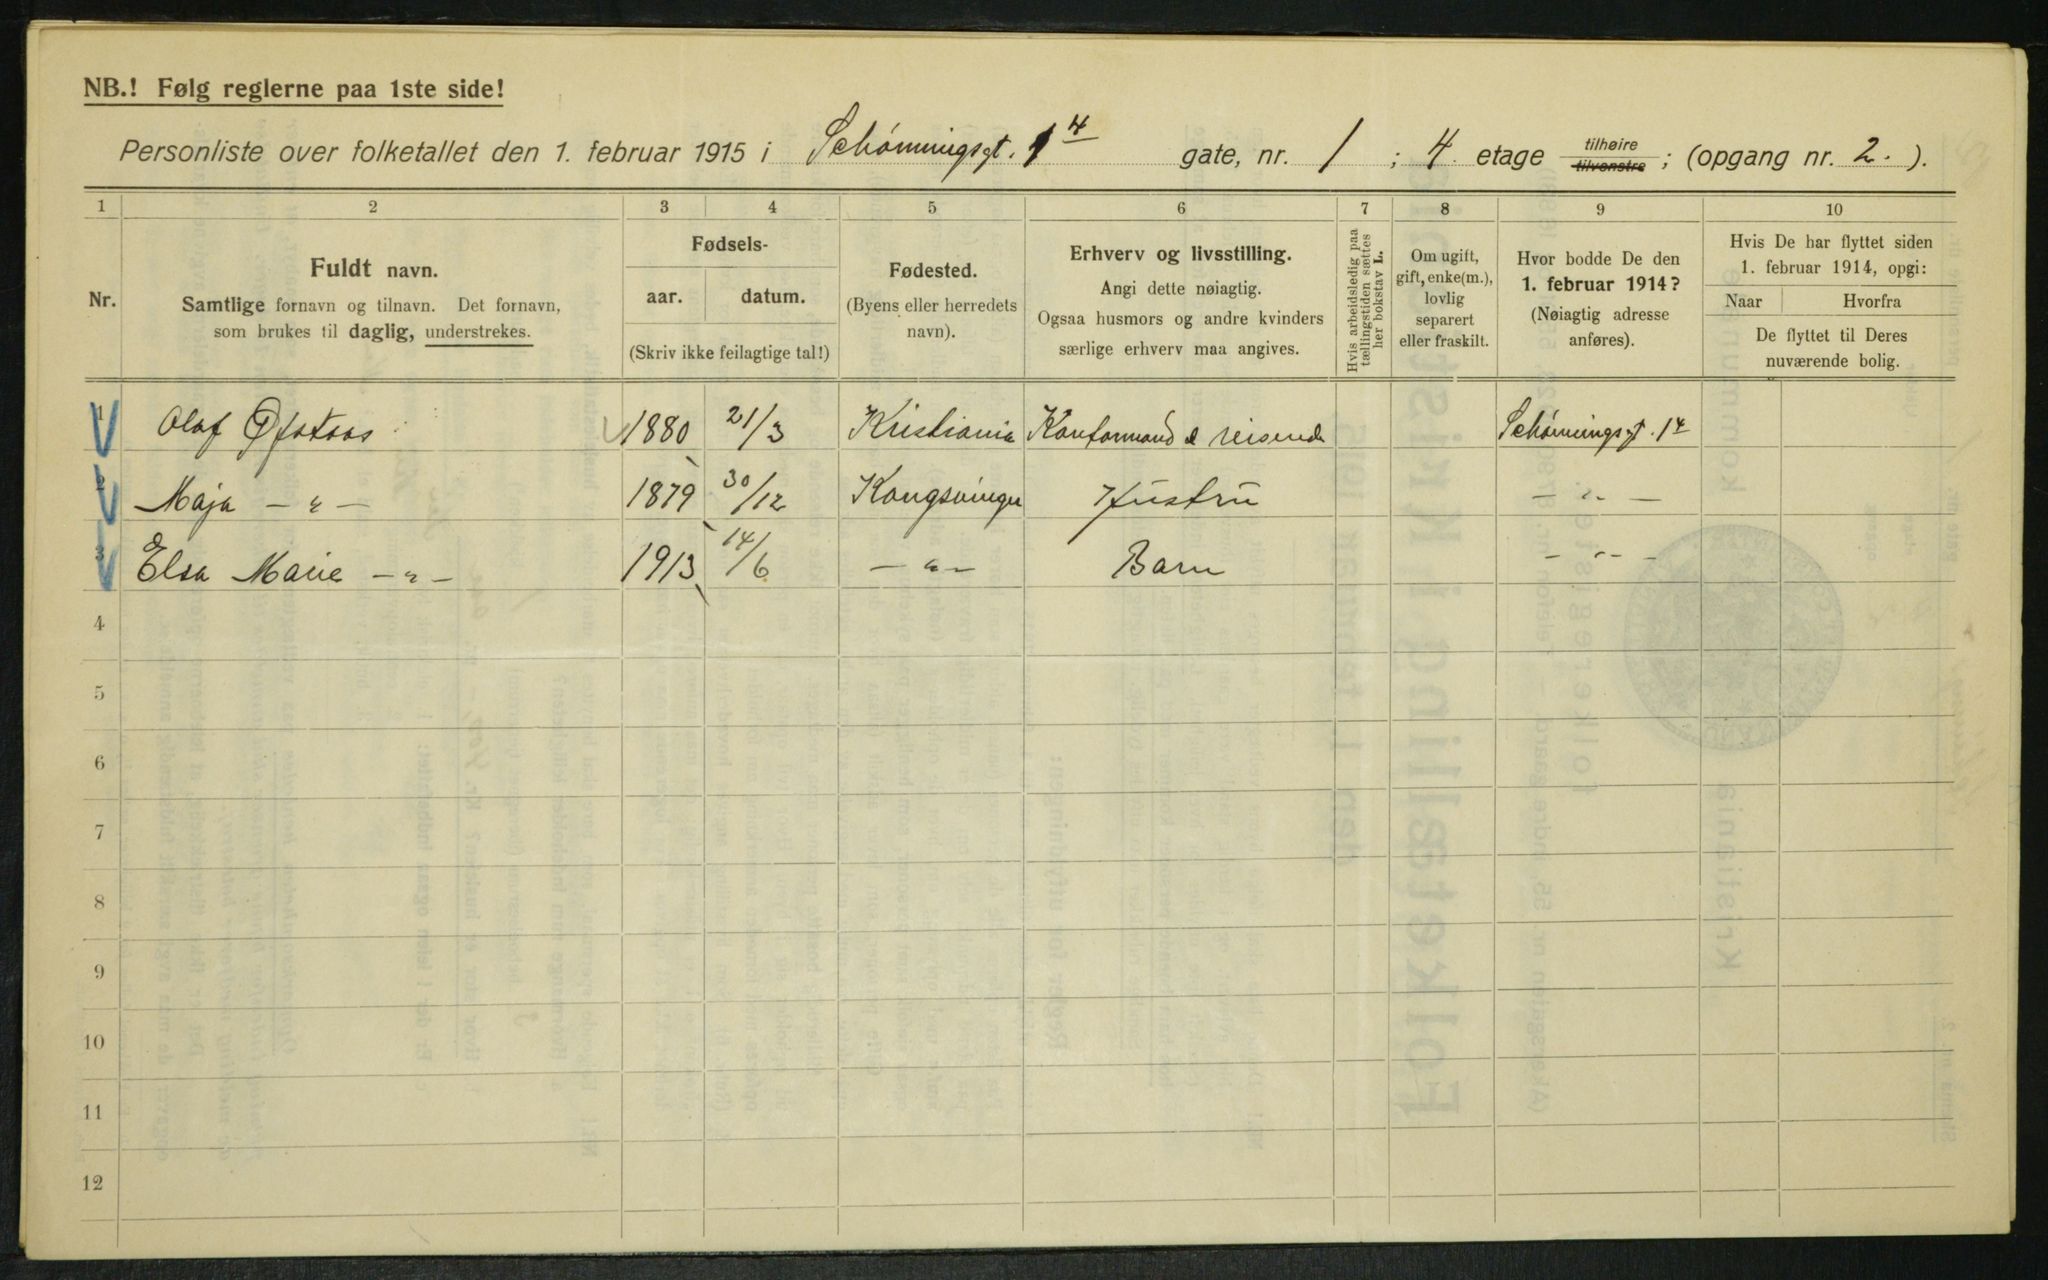 NB.! Følg reglerne paa 1ste side!
Personliste over folketallet den 1. februar 1915 i Schønningsgt. 1 4 gate, nr. 1 ; 4 etage tilhøire tilvenstre ; (opgang nr. 2. ).
1 2 3 4 5 6 7 8 9 10
Nr.
Fuldt navn.
Samtlige fornavn og tilnavn. Det fornavn,
som brukes til daglig, understrekes.
Fødsels-
aar. datum.
(Skriv ikke feilagtige tal!)
Fødested.
(Byens eller herredets
navn).
Erhverv og livsstilling.
Angi dette nøiagtig.
Ogsaa husmors og andre kvinders
særlige erhverv maa angives.
Hvis arbeidsledig paa
tællingstiden sættes
her bokstav L.
Om ugift,
gift, enke(m.),
lovlig
separert
eller fraskilt.
Hvor bodde De den
1. februar 1914?
(Nøiagtig adresse
anføres).
Hvis De har flyttet siden
1. februar 1914, opgi:
Naar Hvorfra
De flyttet til Deres
nuværende bolig.
1 Olaf 1880 21/3 Kristiania Schønningsgt. 14
2 Maja – " – 1879 30/12 Kongsvinger Hustru – " –
3 Elsa Marie – " – 1913 14/6 – " – Barn – " –
4
5
6
7
8
9
10
11
12